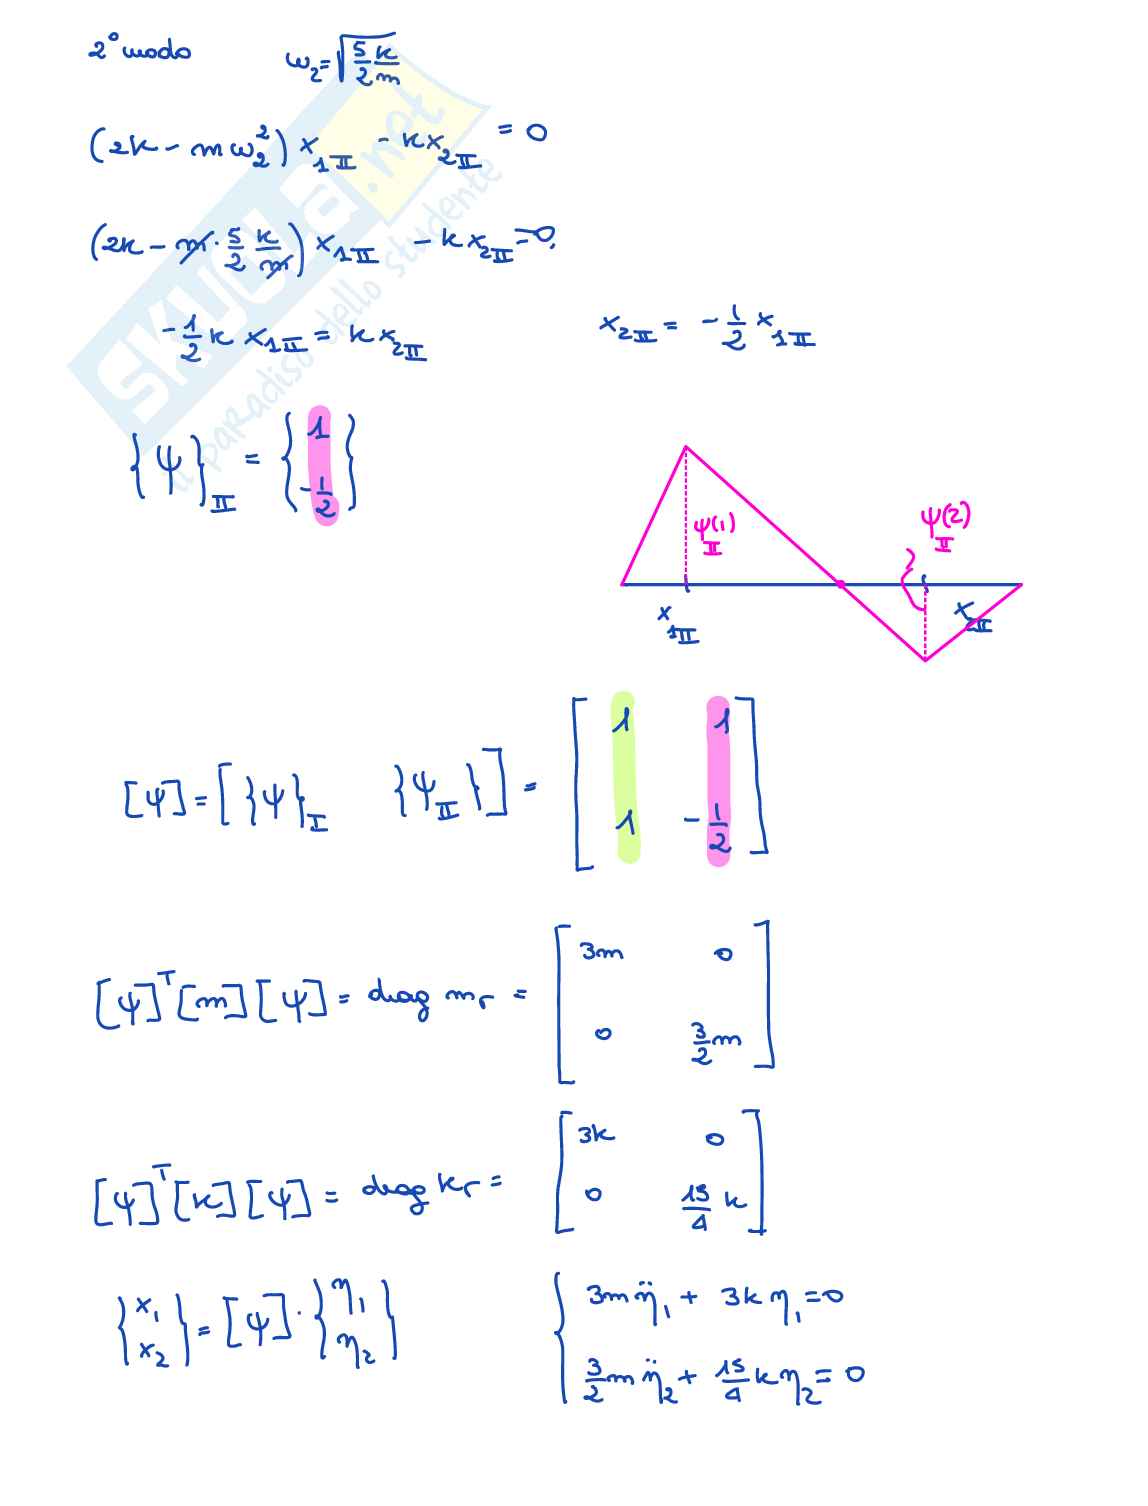 2° modo ω₂ = √(5/2 k/m)
(2k - mω₂²) x₁II - kx₂II = 0
(2k - m · 5/2 k/m) x₁II - kx₂II = 0.
-1/2 k x₁II = kx₂II x₂II = -1/2 x₁II
{ψ}II = {1 -1/2}
ψII(1) ψII(2)
x₁II x₂II
[ψ] = [{ψ}I {ψII}] = [1 1
1 -1/2]
[ψ]ᵀ[m][ψ] = diag mr = [3m 0
0 3/2 m]
[ψ]ᵀ[k][ψ] = diag kr = [3k 0
0 15/4 k]
{x₁ x₂} = [ψ] · {η₁ η₂}
{3mη̈₁ + 3kη₁ = 0
3/2 mη̈₂ + 15/4 kη₂ = 0
SKUOLa.net
il paradiso dello studente